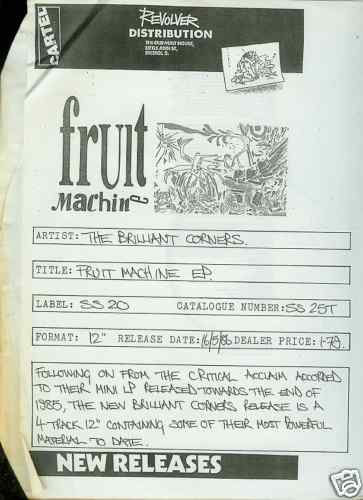 CARTEL
REVOLVER
DISTRIBUTION
THE OLD MALT HOUSE,
LITTLE ANN ST,
BRISTOL 2.
fruit
machine
ARTIST: THE BRILLIANT CORNERS.
TITLE: FRUIT MACHINE EP.
LABEL: SS20 CATALOGUE NUMBER: SS 25T
FORMAT: 12" RELEASE DATE: 16/5/86 DEALER PRICE: 1.79.
FOLLOWING ON FROM THE CRITICAL ACCLAIM ACCORDED
TO THEIR MINI LP RELEASED TOWARDS THE END OF
1985, THE NEW BRILLIANT CORNERS RELEASE IS A
4 TRACK 12" CONTAINING SOME OF THEIR MOST POWERFUL
MATERIAL TO DATE.
NEW RELEASES